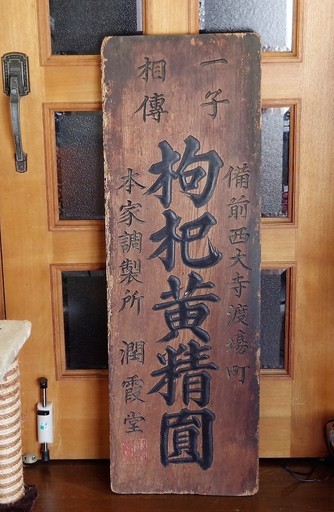 一子
相傳
備前西大寺渡場町
枸杞黄精圓
本家調製所　潤霞堂